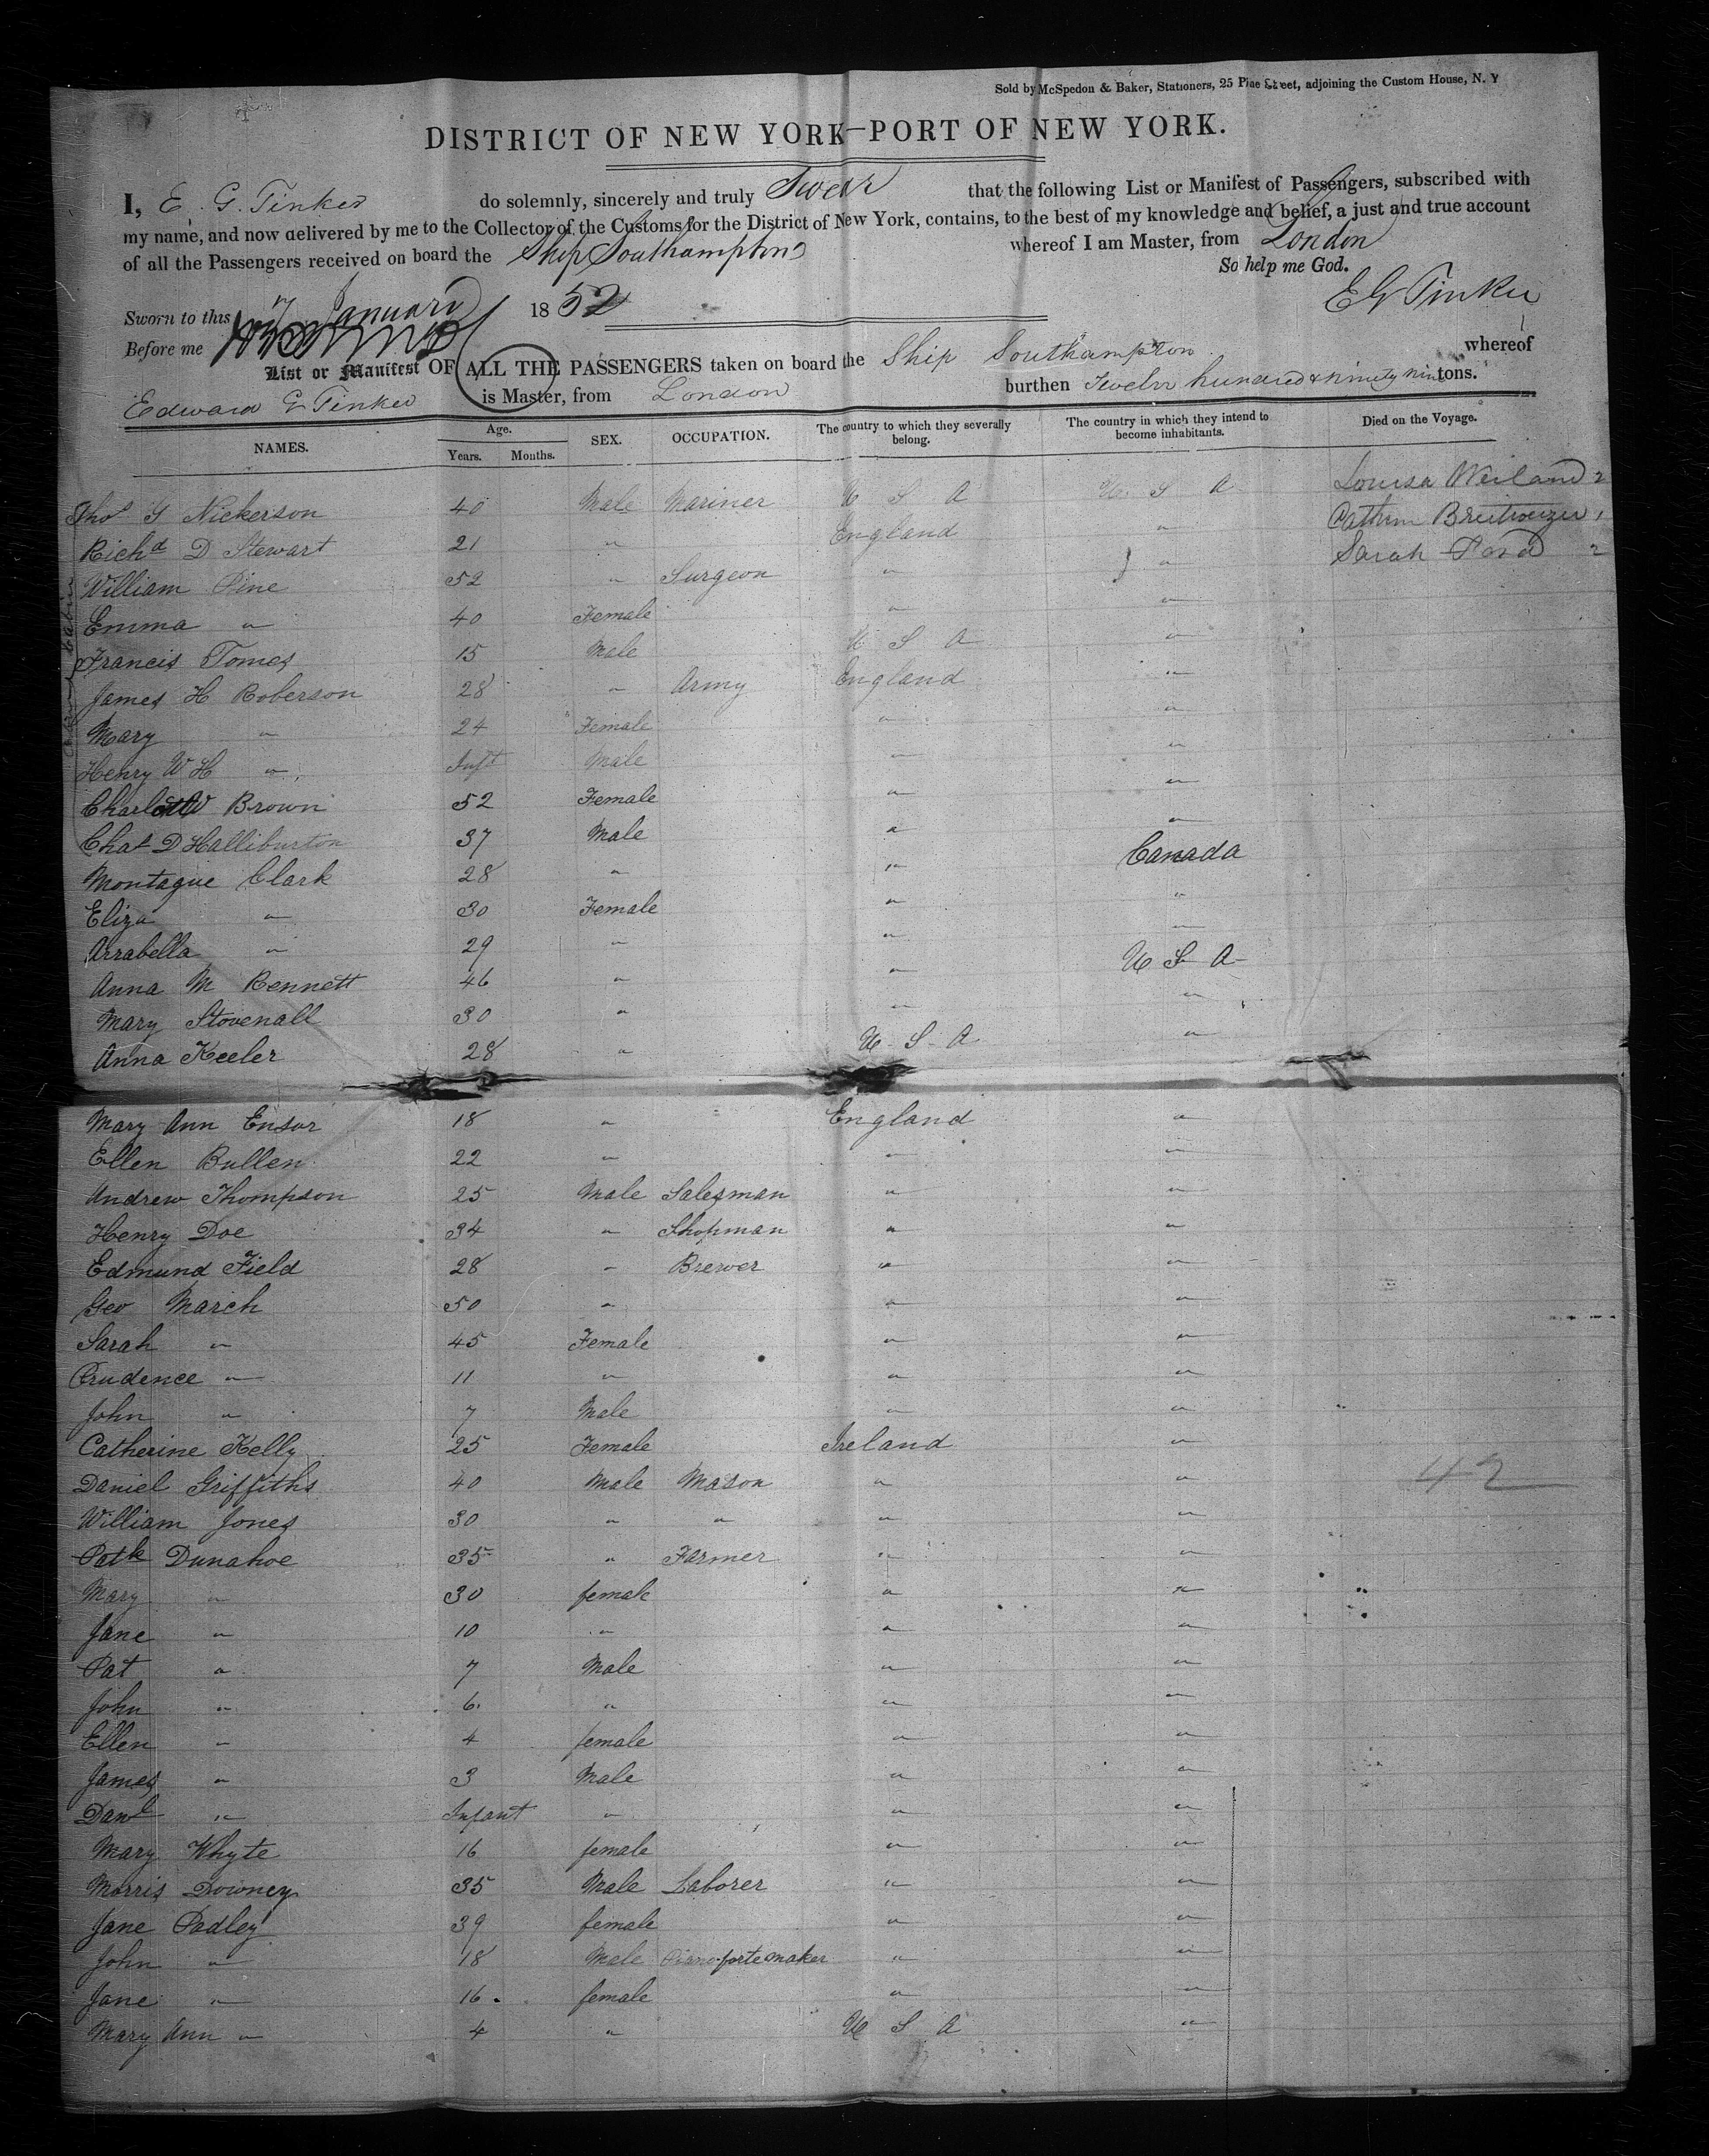 Sold by McSpedon & Baker, Stationers, 25 Pine Street, adjoining the Custom House, N. Y
DISTRICT OF NEW YORK—PORT OF NEW YORK.
I, E. G. Tinker do solemnly, sincerely and truly Swear that the following List or Manifest of Passengers, subscribed with
my name, and now delivered by me to the Collector of the Customs for the District of New York, contains, to the best of my knowledge and belief, a just and true account
of all the Passengers received on board the Ship Southampton whereof I am Master, from London
So help me God.
E G Tinker
Sworn to this 17 January 1852
Before me
List or Manifest OF ALL THE PASSENGERS taken on board the Ship Southampton whereof
Edward G Tinker is Master, from London burthen Twelve hundred & ninety nine tons.
NAMES. Age. Years. Months. SEX. OCCUPATION. The country to which they severally belong. The country in which they intend to become inhabitants. Died on the Voyage.
Thos Nickerson 40 Male Mariner U S A U S A Louisa Weiland 2
Richd D Stewart 21 " England " Cathrn Breitweizer 1
William Pine 52 " Surgeon " " Sarah Ford 2
Emma " 40 Female " "
Francis Tomes 15 Male U S A "
James H Roberson 28 " Army England "
Mary " 24 Female " "
Henry W H " Inft Male " "
Charlotte W Brown 52 Female " "
Chas D Halliburton 37 Male " "
Montague Clark 28 " " Canada
Eliza " 30 Female " "
Arrabella " 29 " " "
Anna M Bennett 46 " " U S A
Mary Stovenall 30 " " "
Anna Keeler 28 " U S A "
Mary Ann Ensor 18 " England "
Ellen Bullen 22 " " "
Andrew Thompson 25 Male Salesman " "
Henry Doe 34 " Shopman " "
Edmund Field 28 " Brewer " "
Geo March 50 " " "
Sarah " 45 Female " "
Prudence " 11 " " "
John " 7 Male " "
Catherine Kelly 25 Female Ireland "
Daniel Griffiths 40 Male Mason " " 42
William Jones 30 " " " "
Patk Dunahoe 35 " Farmer " "
Mary " 30 female " "
Jane " 10 " " "
Pat " 7 Male " "
John " 6 " " "
Ellen " 4 female " "
James " 3 Male " "
Danl " Infant " " "
Mary Whyte 16 female " "
Morris Downey 35 Male Laborer " "
Jane Padley 39 female " "
John " 18 Male Piano-forte maker " "
Jane " 16 female " "
Mary Ann " 4 " U S A "